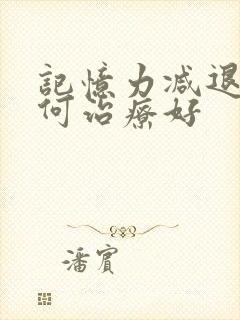 記憶力减退
何治療好
潘賓